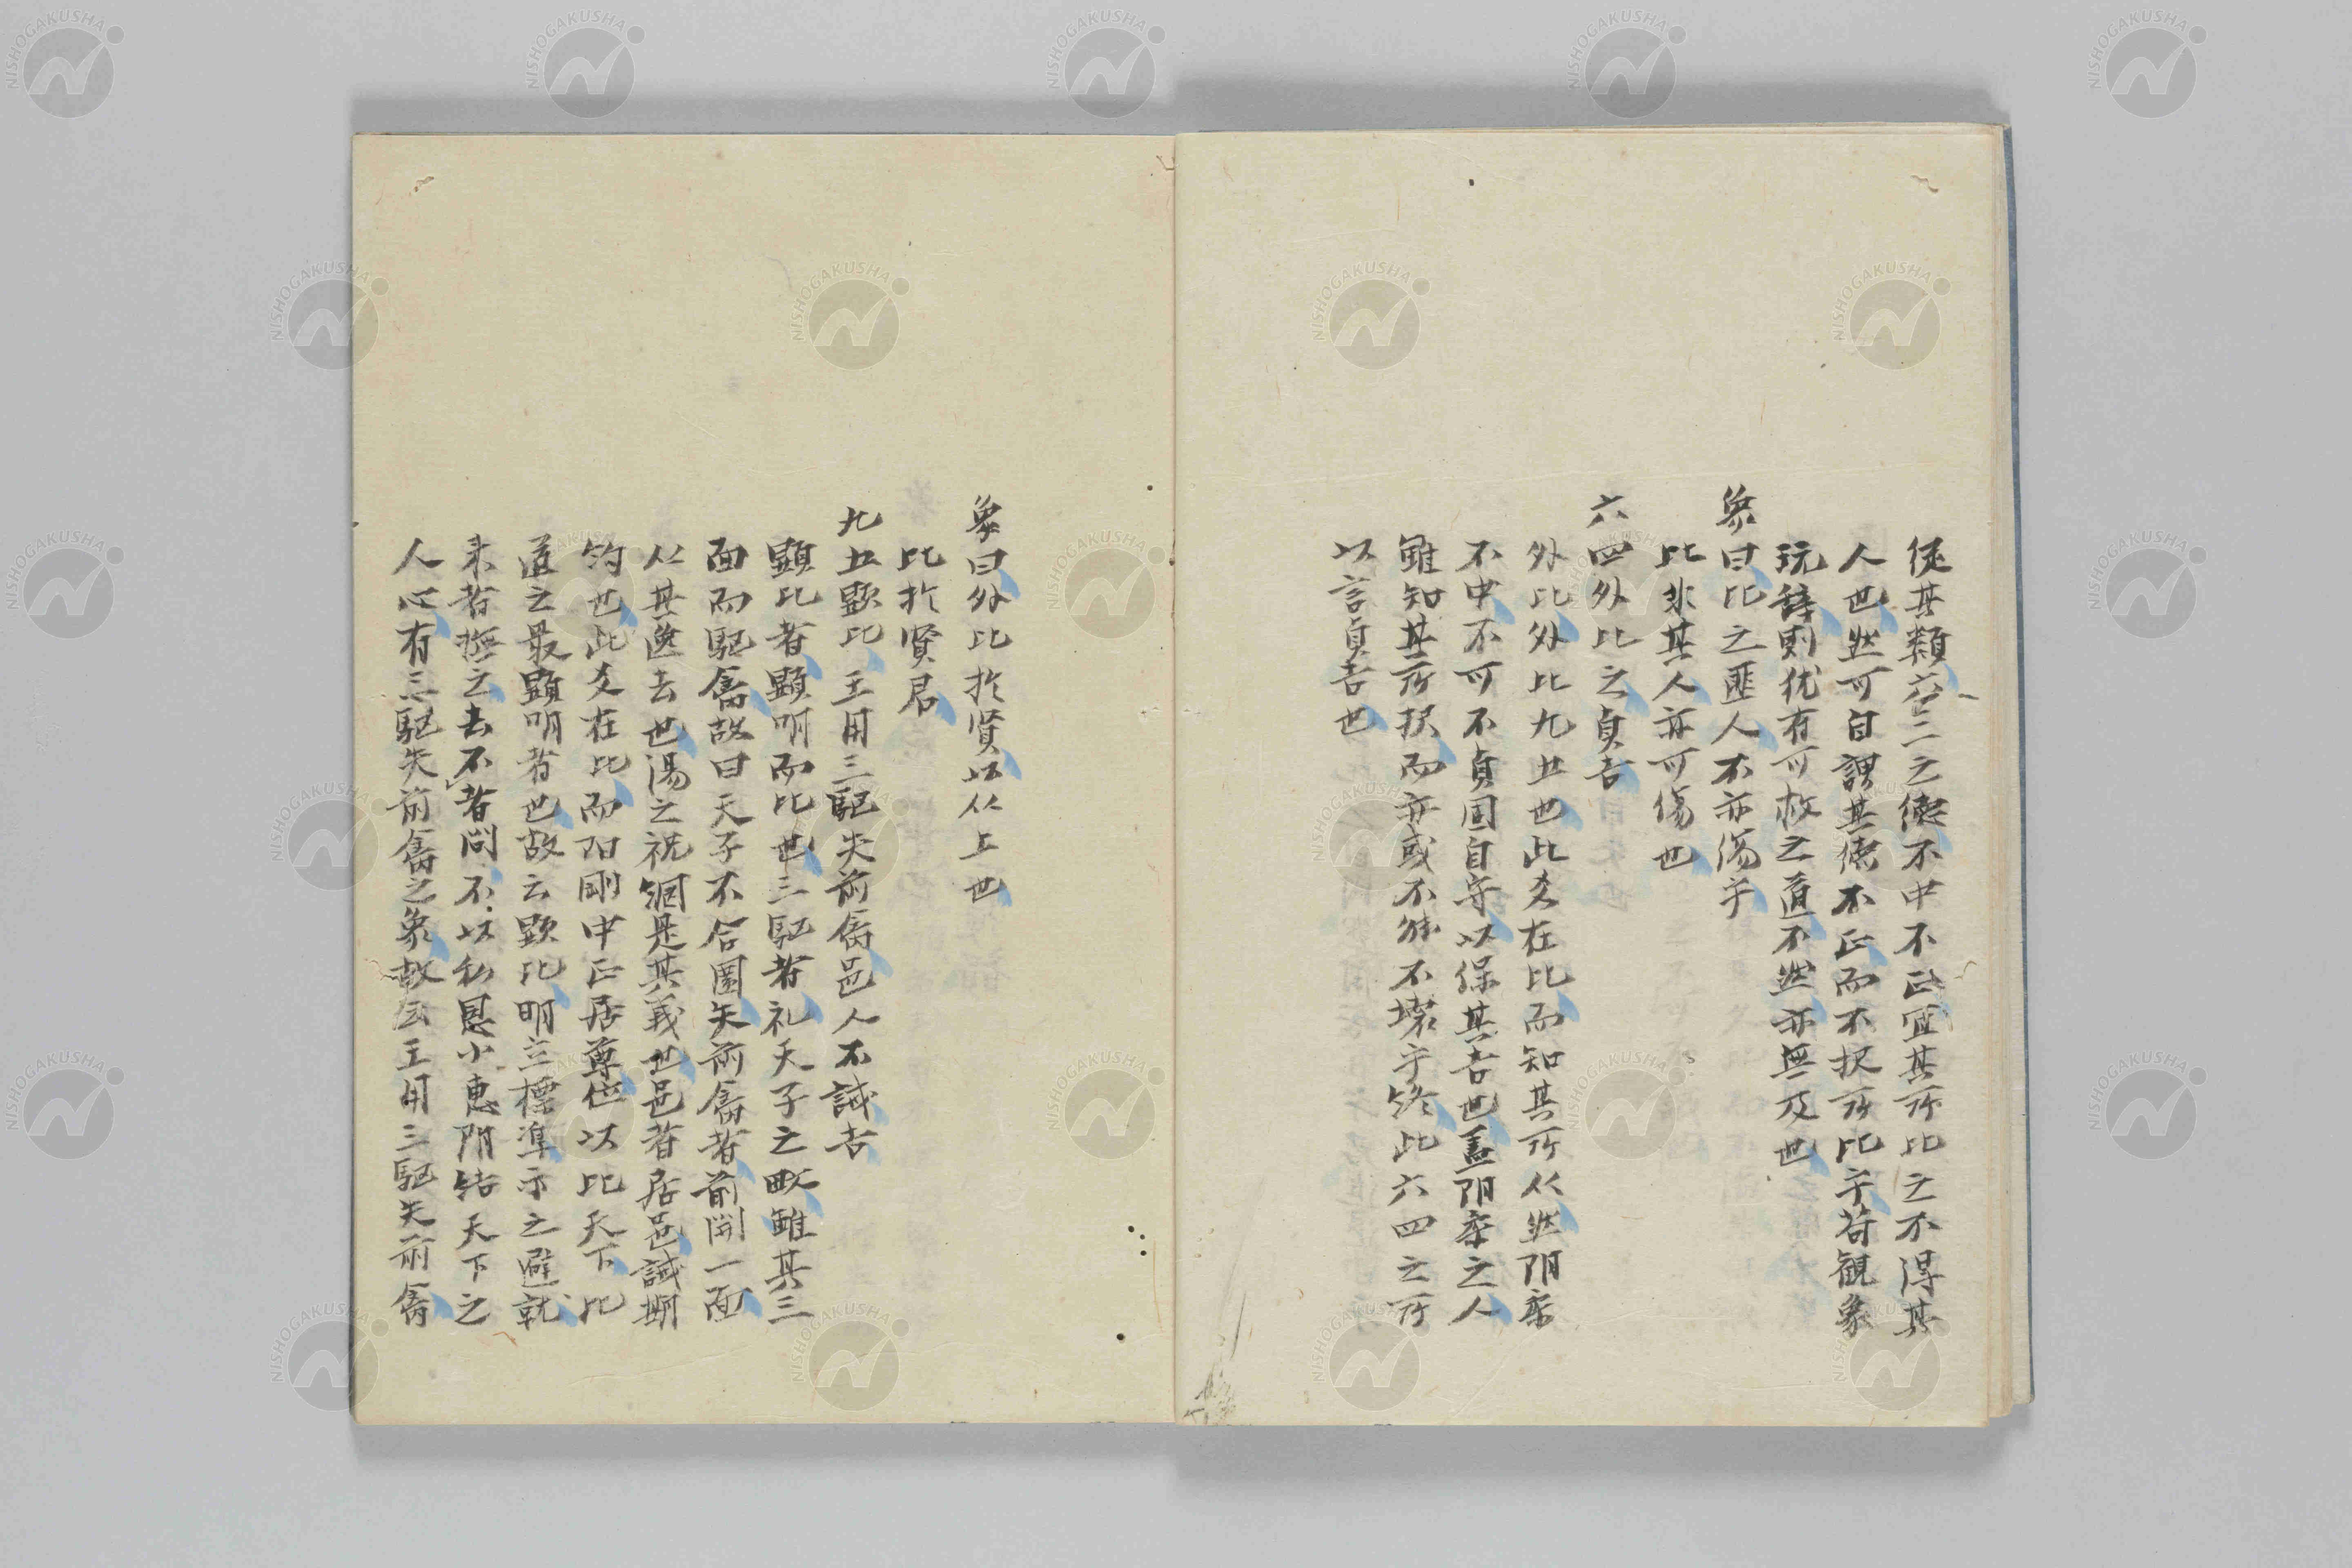 従其類六三之德不中不正宜其所比之不得其
人也然可自謂其德不正而不択所比乎苟観象
玩辞則优有可救之道不然亦無及也
象曰比之匪人不亦傷乎
比非其人亦可傷也
六四外比之貞吉
外比外比九五也此爻在比而知其所从然阴柔
不中不可不貞固自守以保其吉也盖阴柔之人
雖知其所択而亦或不能不壊于終此六四之所
以言貞吉也
象曰外比於賢以从上也
比於賢君
九五顕比王用三駆失前禽邑人不誡吉
顕比者顕明而比也三駆者礼天子之畋雖其三
面而駆禽故曰天子不合圍失前禽者前開一面
从其逸去也湯之祝綱是其義也邑者居邑誡期
約也此爻在比而阳剛中正居尊位以比天下比
道之最顕明者也故云顕比明立標準示之避就
来者撫之去不者問不以私恩小恵阴結天下之
人心有三駆失前禽之象故云王用三駆失前禽